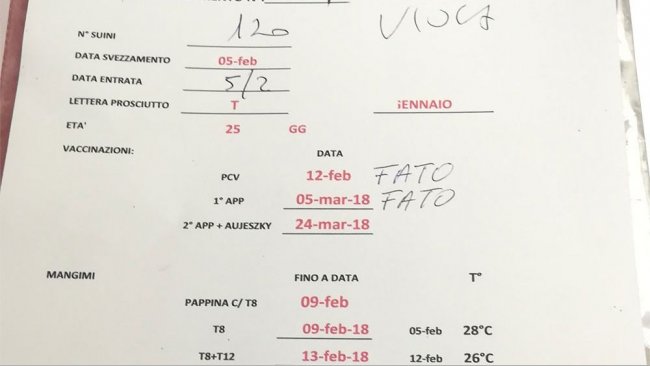 N° SUINI 120
DATA SVEZZAMENTO 05-feb
DATA ENTRATA 5/2
LETTERA PROSCIUTTO T GENNAIO
ETA' 25 GG
VACCINAZIONI: DATA
PCV 12-feb FATO
1° APP 05-mar-18 FATO
2° APP + AUJESZKY 24-mar-18
MANGIMI FINO A DATA T°
PAPPINA C/ T8 09-feb
T8 09-feb-18 05-feb 28°C
T8+T12 13-feb-18 12-feb 26°C